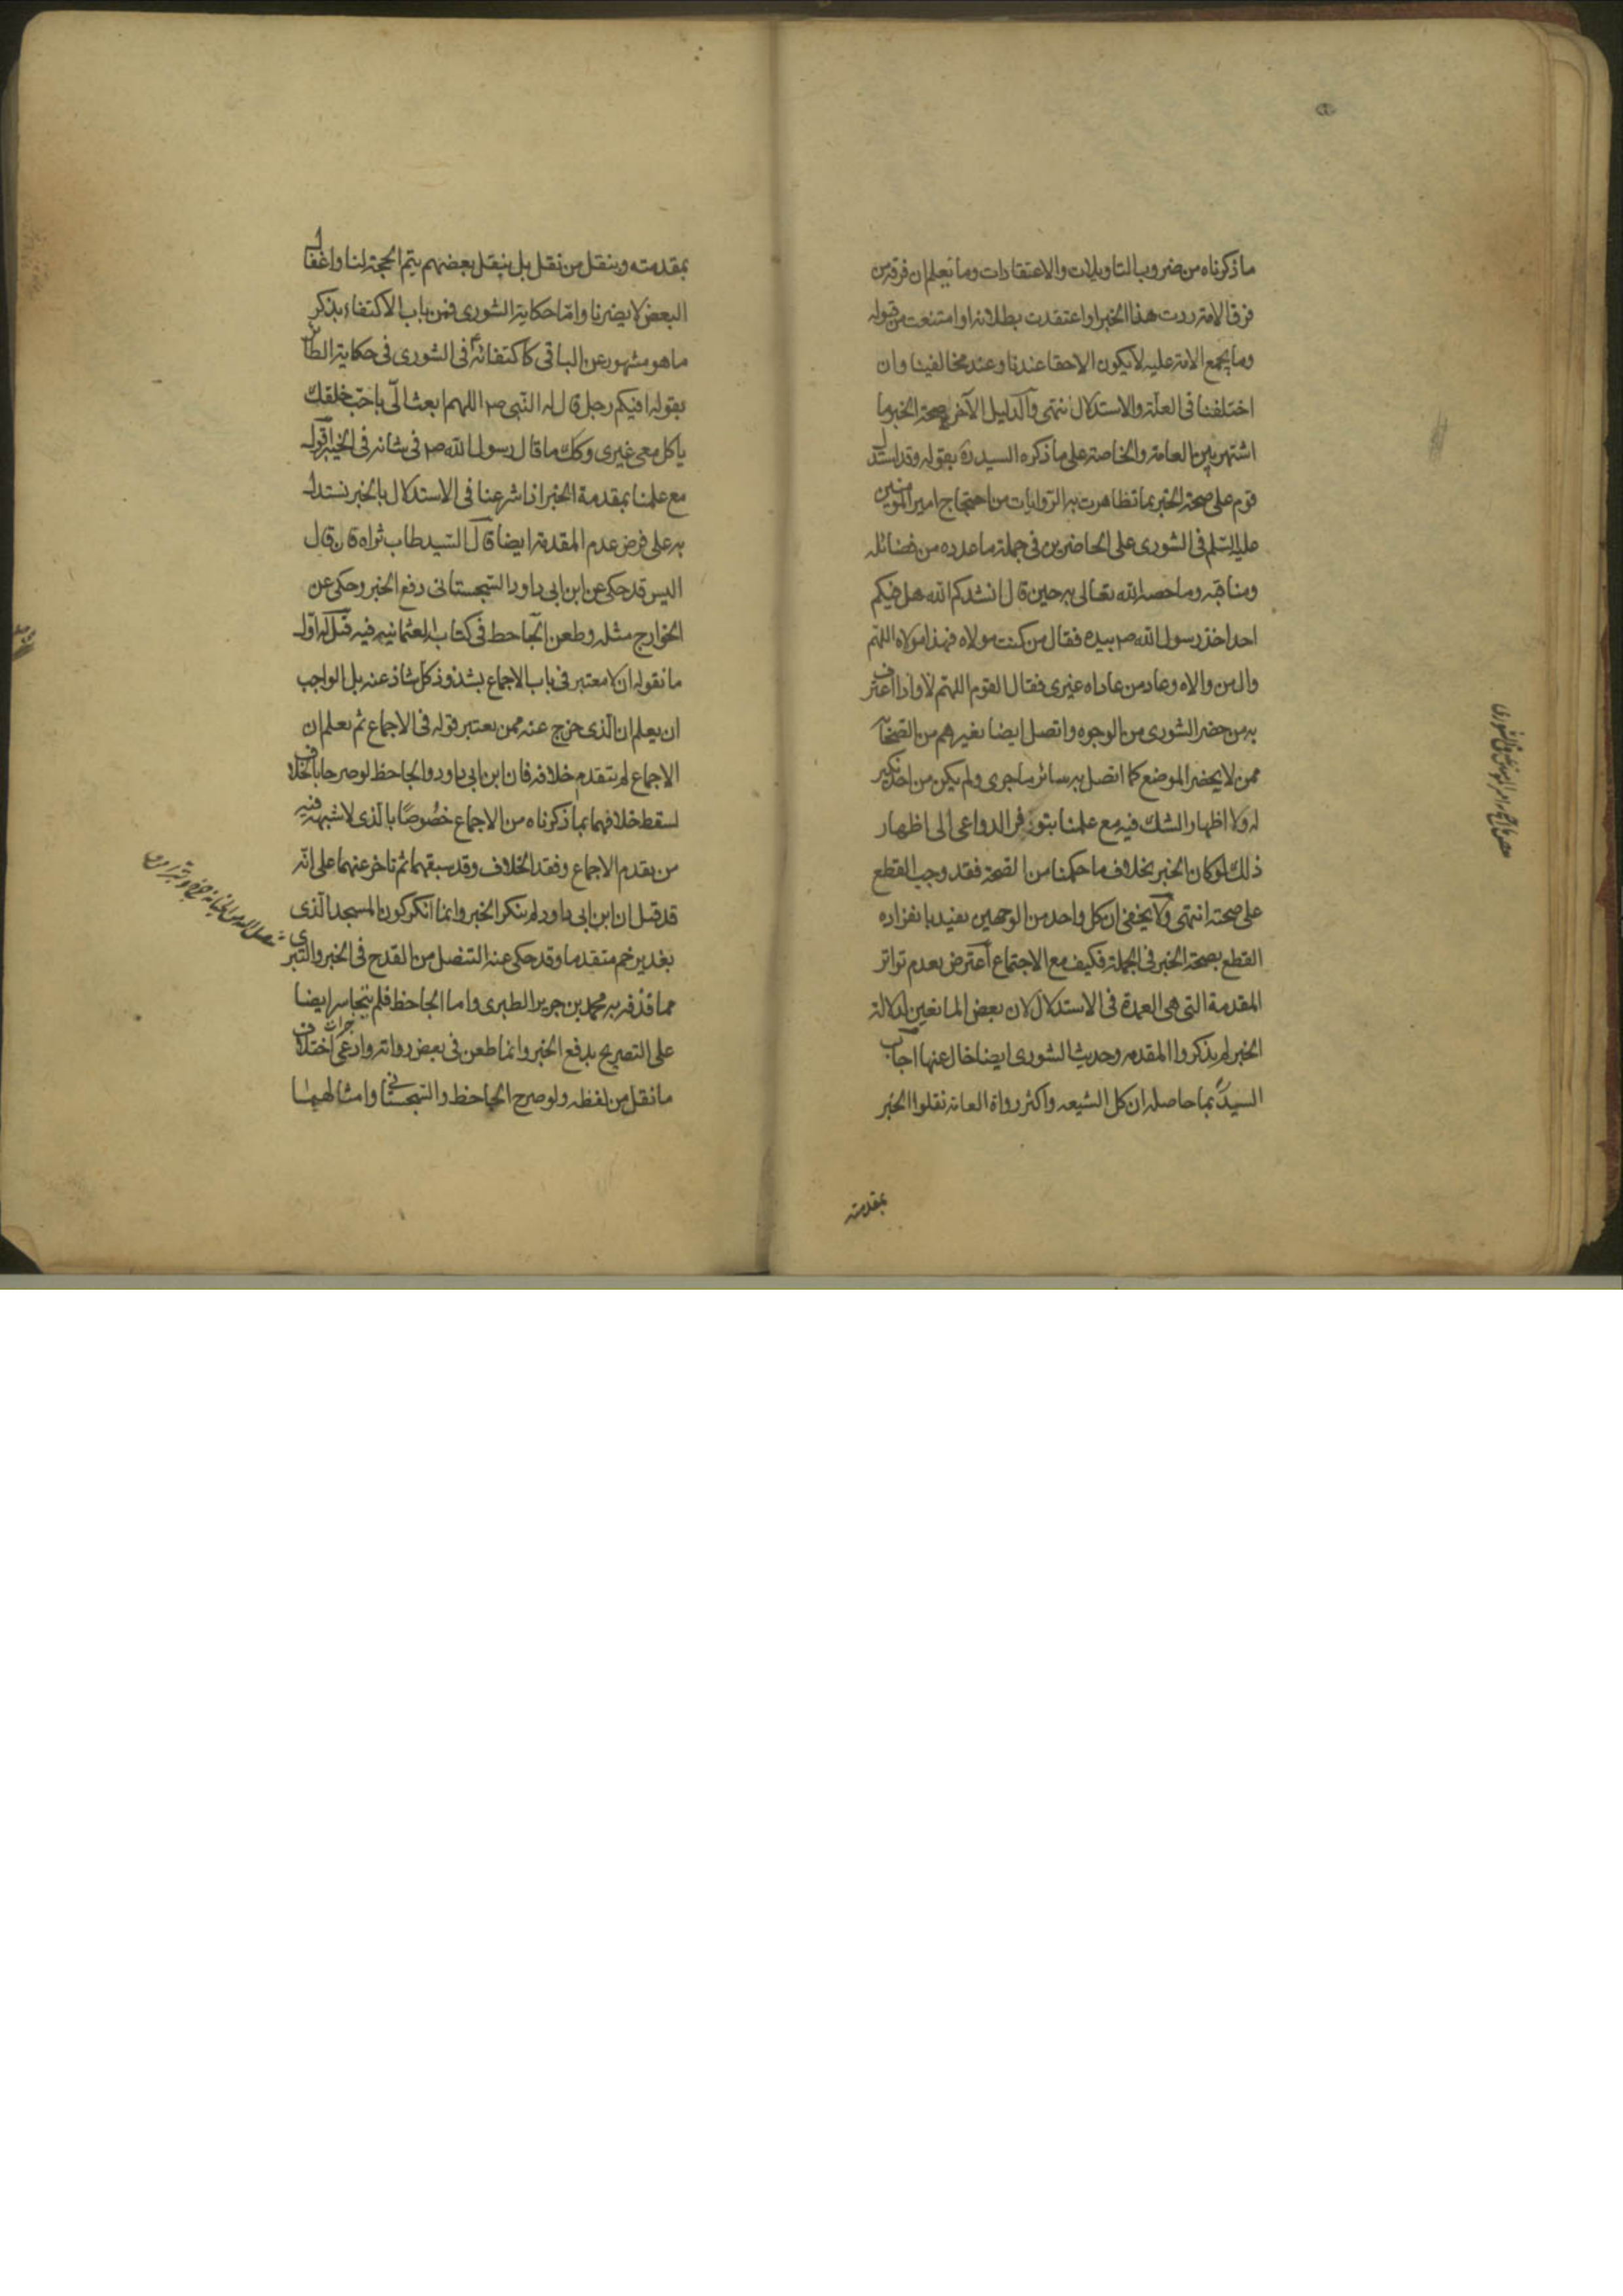 ما ذكرناه من ضروب التاويلات والاعتقادات وما تعلم ان فرقة من
فرق الامة ردت هذا الخبر او اعتقدت بطلانه او امتنعت من قبوله
وما يجمع الامة عليه لا يكون الا حقا عندنا وعند مخالفينا وان
اختلفنا فى العلة والاستدلال انتهى والدليل الآخر بصحة الخبر ما
اشتهر بين العامة والخاصة على ما ذكره السيد ره بقوله وقد استدل
قوم على صحة الخبر بما تظاهرت به الروايات من احتجاج امير المؤمنين
عليه السلم فى الشورى على الحاضرين فى جملة ما عدده من فضائله
ومناقبه وما خصه الله تعالى به حين قال انشدكم الله هل فيكم
احد اخذ رسول الله ص بيده فقال من كنت مولاه فهذا مولاه اللهم
وال من والاه وعاد من عاداه غيرى فقال القوم اللهم لا واذا اعترف
به من حضر الشورى من الوجوه واتصل ايضا بغيرهم من الصحابة
ممن لا يحضر الموضع كما اتصل به سائر ما جرى ولم يكن من احد نكير
له ولا اظهار الشك فيه مع علمنا بتوفر الدواعى الى اظهار
ذلك لو كان الخبر بخلاف ما حكمنا من الصحة فقد وجب القطع
على صحته انتهى ولا يخفى ان كل واحد من الوجهين يفيد بانفراده
القطع بصحة الخبر فى الجملة فكيف مع الاجتماع اعترض بعدم تواتر
المقدمة التى هى العمدة فى الاستدلال لان بعض المانعين لدلالة
الخبر لم يذكروا المقدمه وحديث الشورى ايضا خال عنها اجاب
السيد بما حاصله ان كل الشيعه واكثر رواة العامة نقلوا الخبر
بمقدمته
بمقدمته وبنقل من نقل بل بنقل بعضهم يتم الحجة لنا واغفال
البعض لا يضرنا واما حكاية الشورى فمن باب الاكتفاء بذكر
ما هو مشهور عن الباقى كاكتفائه فى الشورى فى حكاية الطائر
بقوله افيكم رجل قال له النبى ص اللهم ابعث الى باحب خلقك
ياكل معى غيرى وكك ما قال رسول الله ص فى شانه فى الخيبر اقول
مع علمنا بمقدمة الخبر اذا شرعنا فى الاستدلال بالخبر نستدل
به على فرض عدم المقدمة ايضا قال السيد طاب ثراه فان قال
اليس قد حكى عن ابن ابى داود السجستانى دفع الخبر وحكى عن
الخوارج مثله وطعن الجاحظ فى كتاب العثمانيه فيه قيل له اول
ما نقوله ان لا معتبر فى باب الاجماع بشذوذ كل شاذ عنه بل الواجب
ان يعلم ان الذى خرج عنه ممن يعتبر قوله فى الاجماع ثم يعلم ان
الاجماع لم يتقدم خلافه فان ابن ابى داود والجاحظ لو صرحا بالخلاف
لسقط خلافهما بما ذكرناه من الاجماع خصوصا بالذى لا شبهة فيه
من تقدم الاجماع وفقد الخلاف وقد سبقهما ثم تاخر عنهما على انه
قد قيل ان ابن ابى داود لم ينكر الخبر وانما انكر كون المسجد الذى
بغدير خم متقدما وقد حكى عنه التنصل من القدح فى الخبر والتبرى
مما قذفه به محمد بن جرير الطبرى واما الجاحظ فلم يتجاسر ايضا
على التصريح بدفع الخبر وانما طعن فى بعض رواته وادعى اختلاف
ما نقل من لفظه ولو صرح الجاحظ والسجستانى وامثالهما